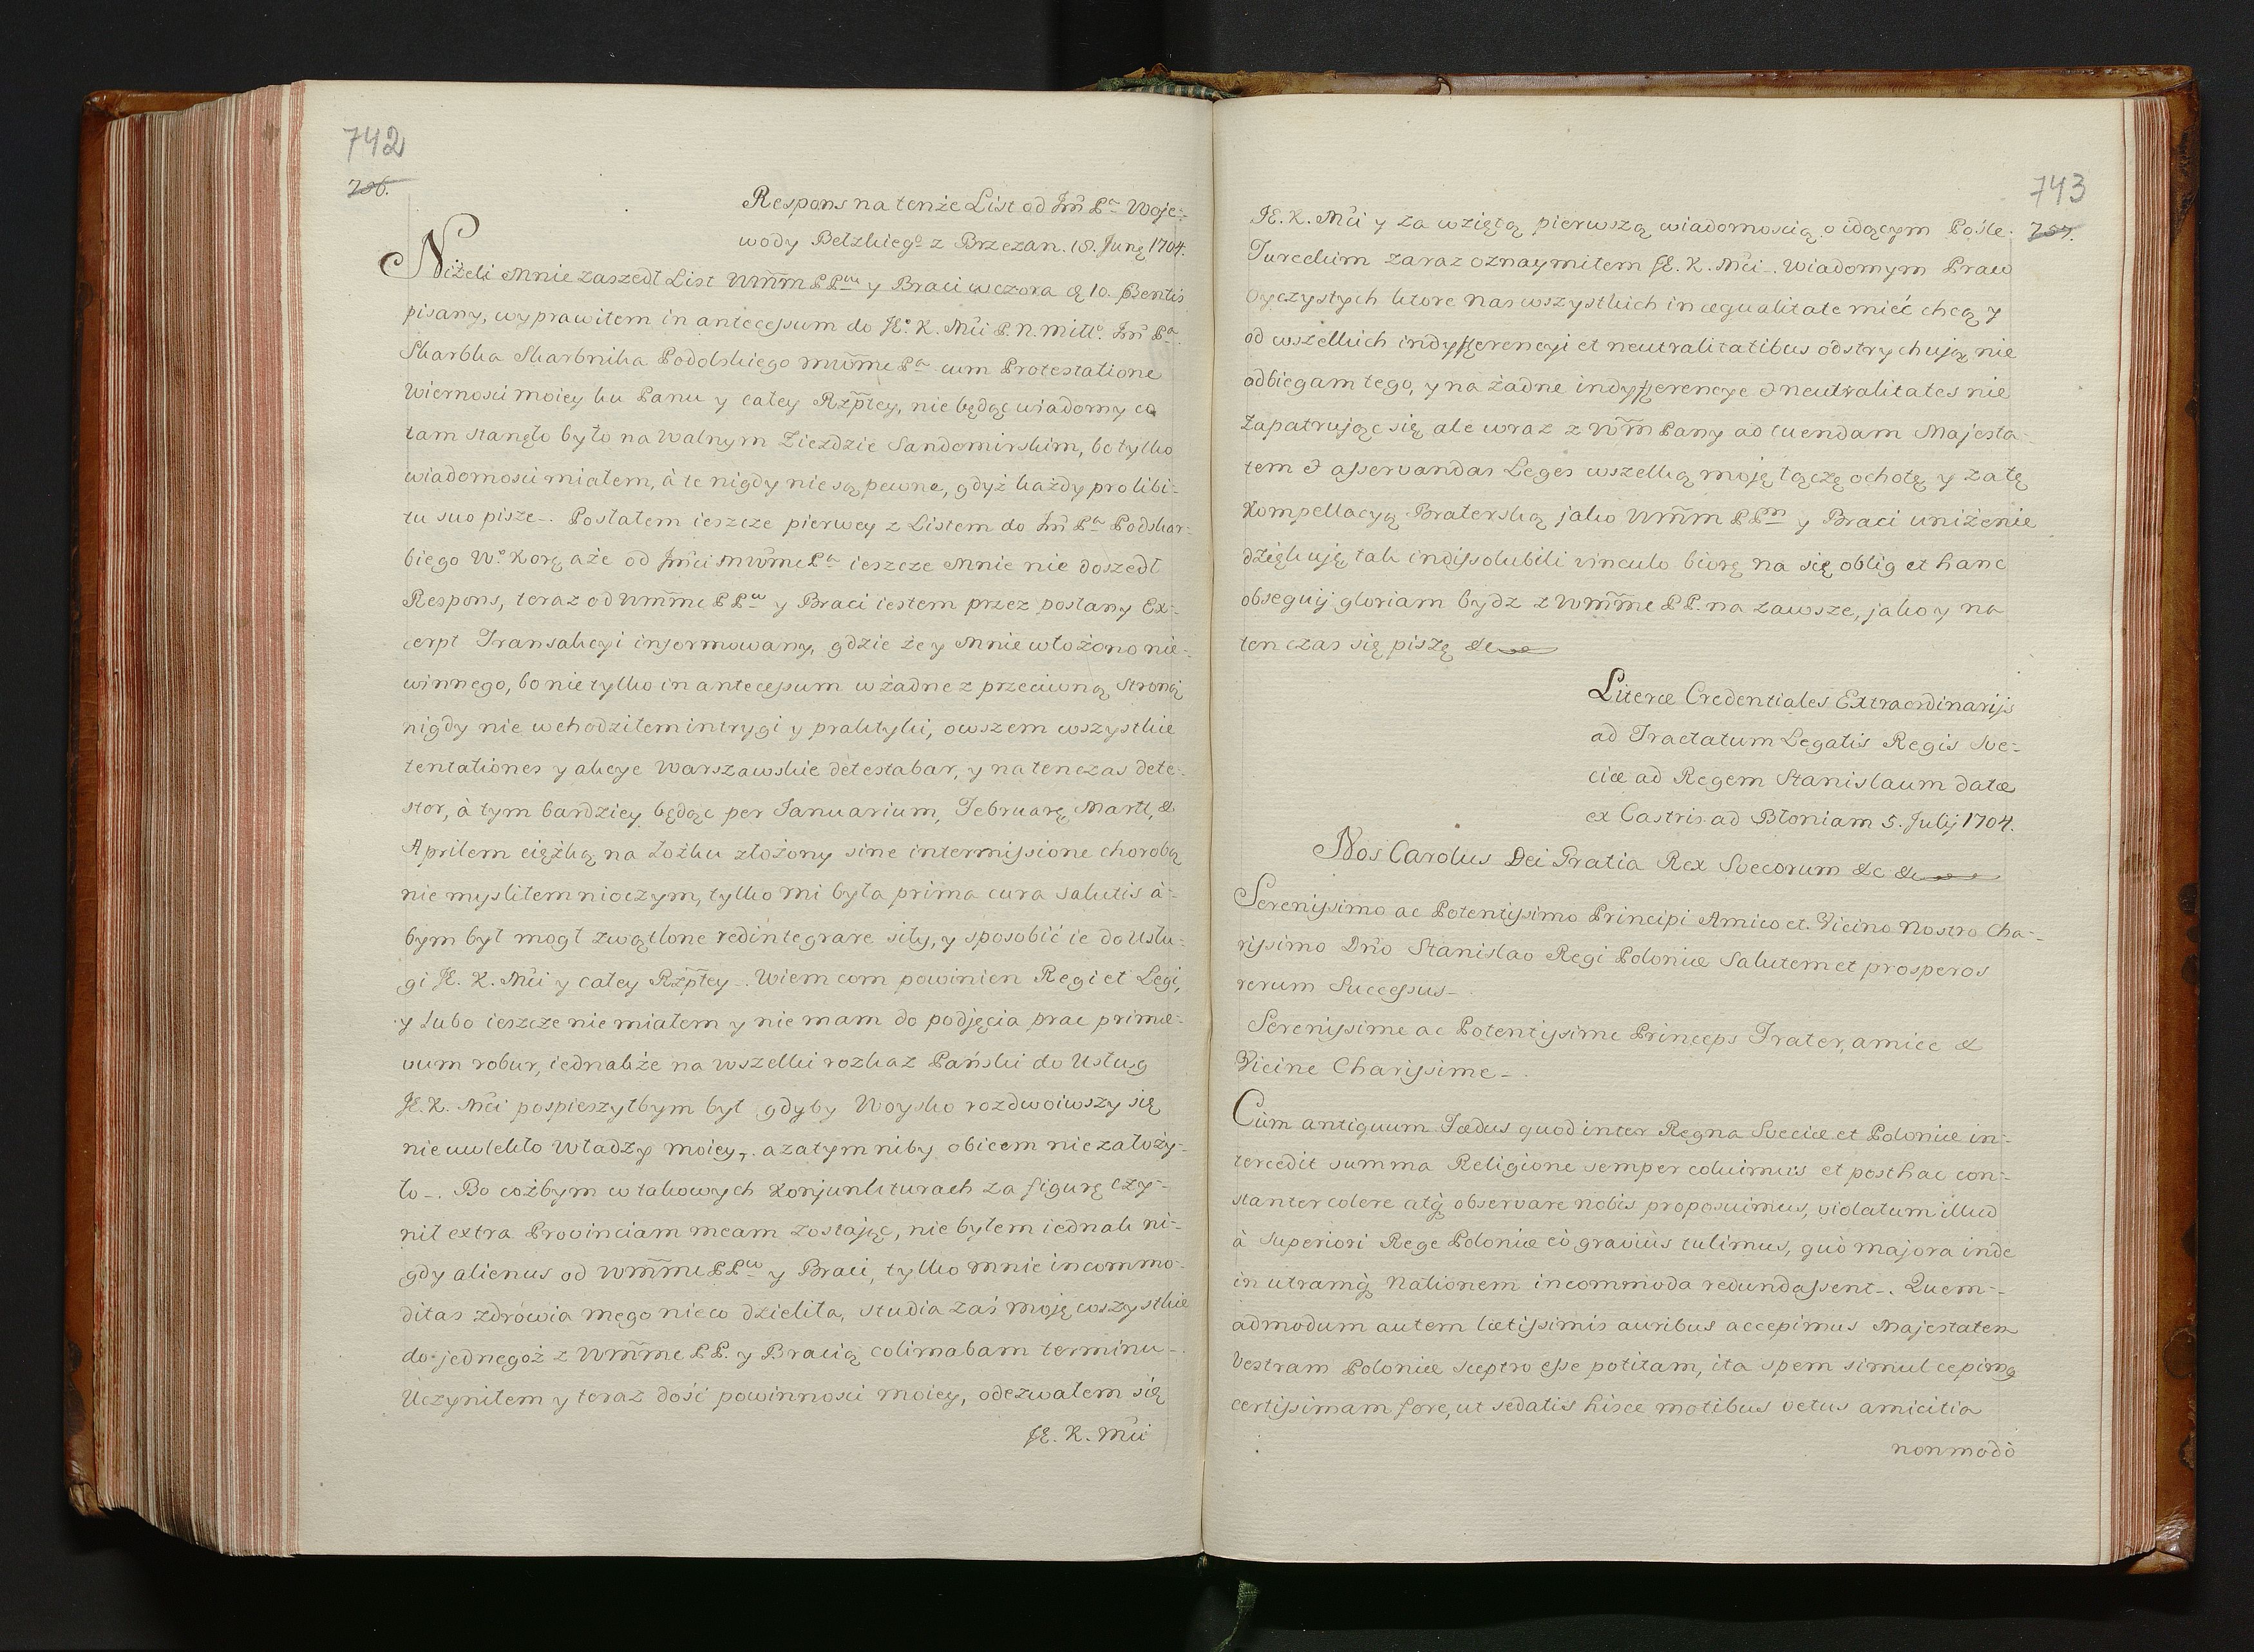 742
736.
Respons na tenże List od Jm̃ Pa Woje-
wody Bełzkiego z Brzezan. 18. Junę 1704.
Niżeli mnie zaszedł List Wm̃m PPnu y Braci wczora ą 10. Prentis
pisany, wyprawiłem in antecessum do JEo. K. Mći P. N. Miłło. Jm̃ Pa
Skarbka Skarbnika Podolskiego mwm̃e Pa cum Protestatione
wiernosci moiey ku Panu y całey Rzp̃tey, nie będąc wiadomy co
tam stanęło było na Walnym Zieździe Sandomirskim, bo tylko
wiadomosci miałem, à te nigdy nie są pewne, gdyż każdy pro libi-
tu suo pisze. Posłałem ieszcze pierwey z Listem do Jm̃ Pa Podskar-
biego Wo Korę, aże od Jm̃ci mwm̃e Pa ieszcze mnie nie doszedł
Respons, teraz od Wm̃me PPw y Braci iestem przez posłany Ex-
cerpt Transakcyi informowany, gdzie że y mnie włożono nie-
winnego, bo nie tylko in antecessum w żadne z przeciwną stroną
nigdy nie wchodziłem intrygi y praktyki, owszem wszystkie
tentationes y akcye Warszawskie détestabar, y na ten czas dete-
stor, à tym bardziey będąc per Januarium, Februarę, Marti, &
Aprilem ciężką na Łożku złożony sine intermissione chorobą
nie mysliłem nioczym, tylko mi była prima cura salutis à-
bym był mogł zwątlone redintegrare siły, y sposobić ie do Usłu-
gi JE. K. Mći y całey Rzp̃tey. Wiem com powinien Regi et Legi,
y lubo ieszcze nie miałem y nie mam do podjęcia prac primæ-
vum robur, iednakże na wszelki rozkaz Pański do Usług
JE. K. Mći pospieszyłbym był gdyby Woysko rozdwoiwszy się
nie uwlekło władzy moiey, a zatym niby obicem nie założy-
ło. Bo cożbym w takowych Konjunkturach za figurę czy-
nił extra Provinciam meam zostając, nie byłem iednak ni-
gdy alienus od Wm̃me PPw y Braci, tylko mnie incommo-
ditas zdrówia mego nieco dzieliła, studia zaś moję wszystkie
do jednegoż z Wm̃me PP. y Bracią colimabam terminu.
Uczyniłem y teraz dość powinnosci moiey, odezwałem się
JE. K. Mći
743
737.
JE. K. Mći y za wziętą pierwszą wiadomoscią o idącym Pośle
Tureckim zaraz oznaymiłem JE. K. Mći. Wiadomym Praw
Oyczystych ktore nas wszystkich in æqualitate mieć chcą y
od wszelkich indyfferencyi et neutralitatibus odstrychują nie
odbiegam tego, y na żadne indyfferencye & neutralitates nie
zapatrując się ale wraz z Wm̃ Pany ad tuendam Majesta-
tem & asservandas Leges wszelką moję łączę ochotę y za tę
Kompellacyą Braterską jako Wm̃m PPm y Braci uniżenie
dziękuję, tak indissolubili vinculo biorę na się oblig et hanc
obsequij gloriam bydz z Wm̃me PP. na zawsze, jako y na
ten czas się piszę &c
Literæ Credentiales Extraordinarijs
ad Tractatum Legatis Regis Sve-
ciæ ad Regem Stanislaum datæ
ex Castris ad Błoniam 5. Julij 1704.
Nos Carolus Dei Gratia Rex Svecorum &c &c
Serenissimo ac Potentissimo Principi Amico et Vicino Nostro Cha-
rissimo Dño Stanislao Regi Poloniæ Salutem et prosperos
rerum Successus.
Serenissime ac Potentissime Princeps Frater, amice &
Vicine Charissime.
Cùm antiquum Fœdus quod inter Regna Sveciæ et Poloniæ in-
tercedit summa Religione semper coluimus et posthac con-
stanter colere atq̀ observare nobis proposuimus, violatum illud
à Superiori Rege Poloniæ eò graviùs tulimus, quò majora inde
in utramq̀ Nationem incommoda redundassent. Quem-
admodum autem lætissimis auribus accepimus Majestatem
Vestram Poloniæ sceptro esse potitam, ita spem simul cepimq
certissimam fore, ut sedatis hisce motibus vetus amicitia
non modò